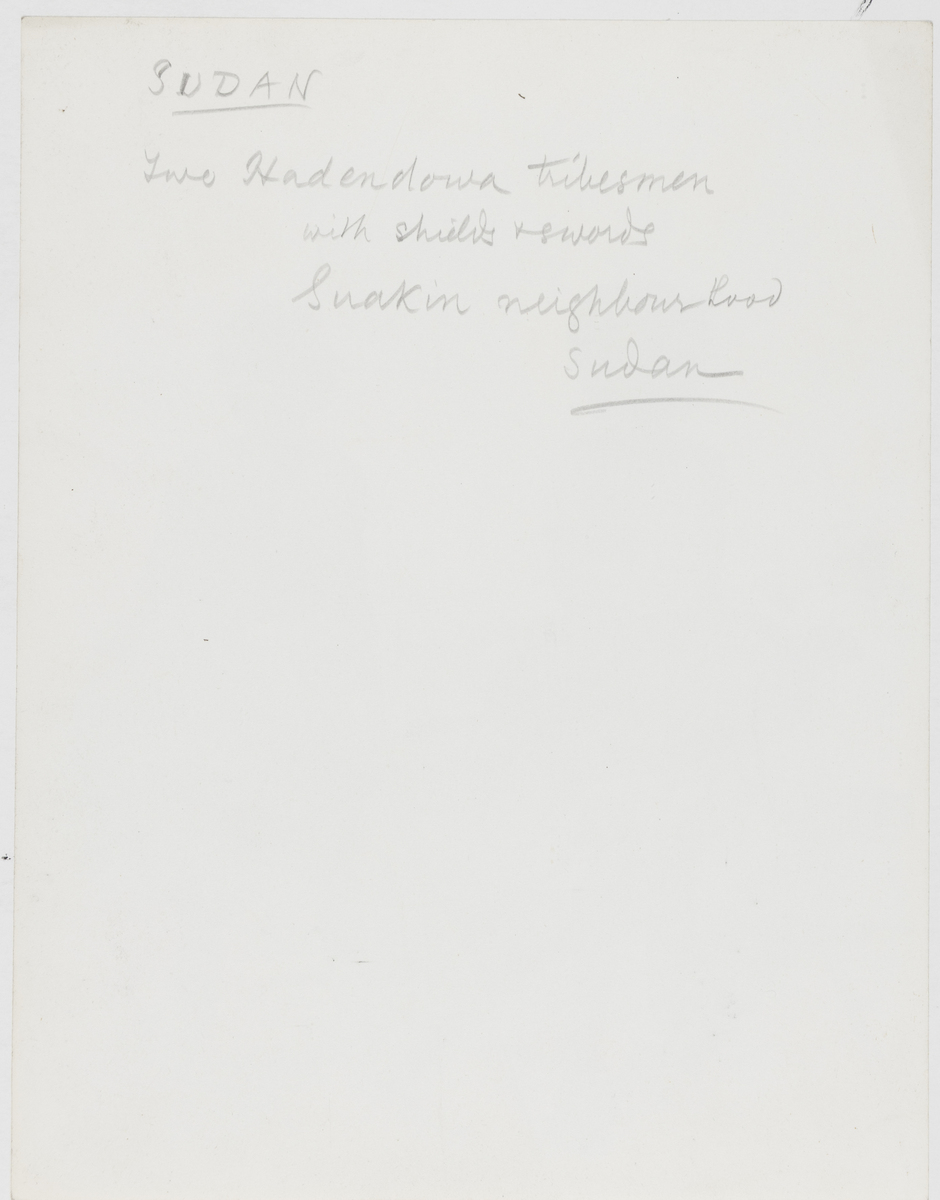 SUDAN
Two Hadendowa tribesmen
with shields & swords
Suakin neighbourhood
Sudan